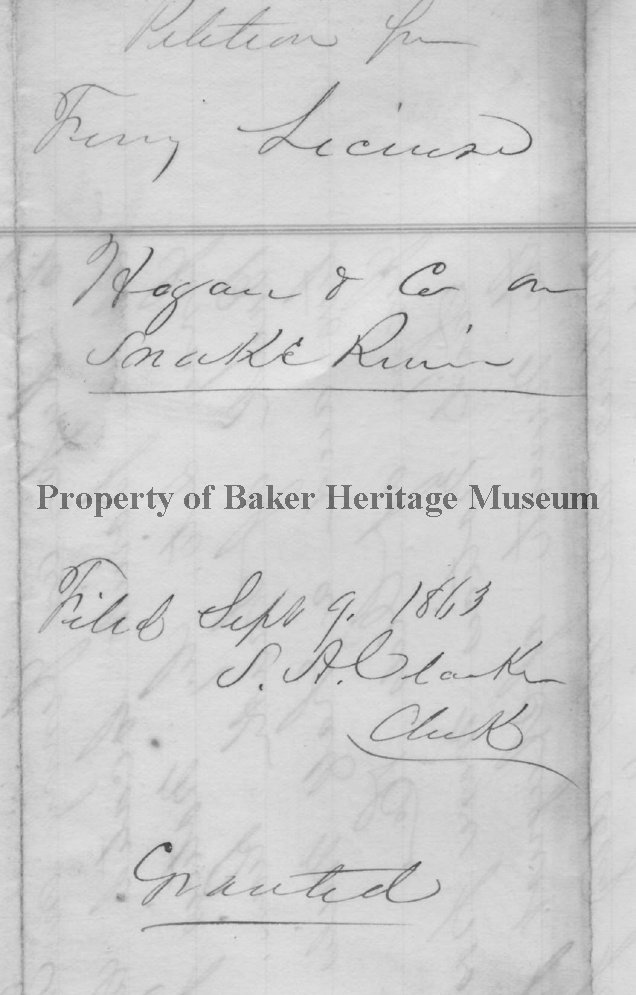 Petition for
Ferry License
Hogan & Co on
Snake River
Property of Baker Heritage Museum
Filed Sept 9. 1863
S. A. Clarke
Clerk
Granted